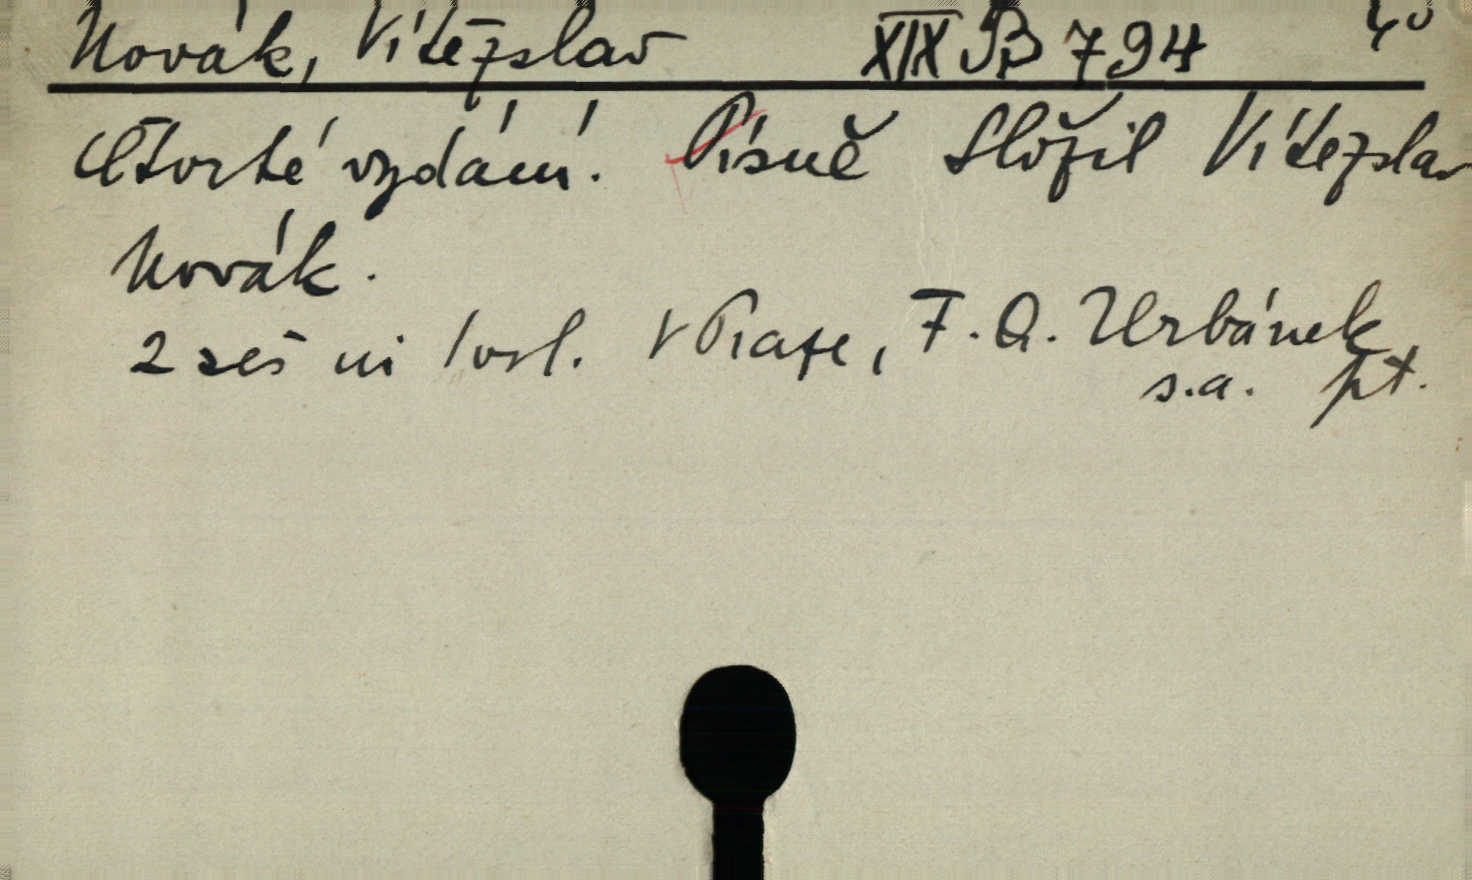 Novák, Vítězslav XIX B 794 4°
Čtvrté vydání. Písně složil Vítězslav
Novák.
2 seš in 1 vol. V Praze, F. A. Urbánek
s.a. pt.